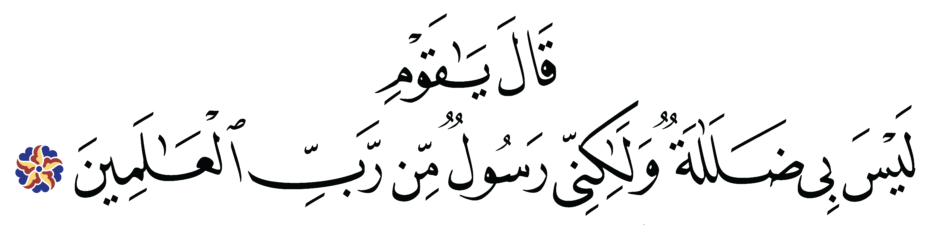 قَالَ يَٰقَوْمِ
لَيْسَ بِى ضَلَٰلَةٌ وَلَٰكِنِّى رَسُولٌ مِّن رَّبِّ ٱلْعَٰلَمِينَ